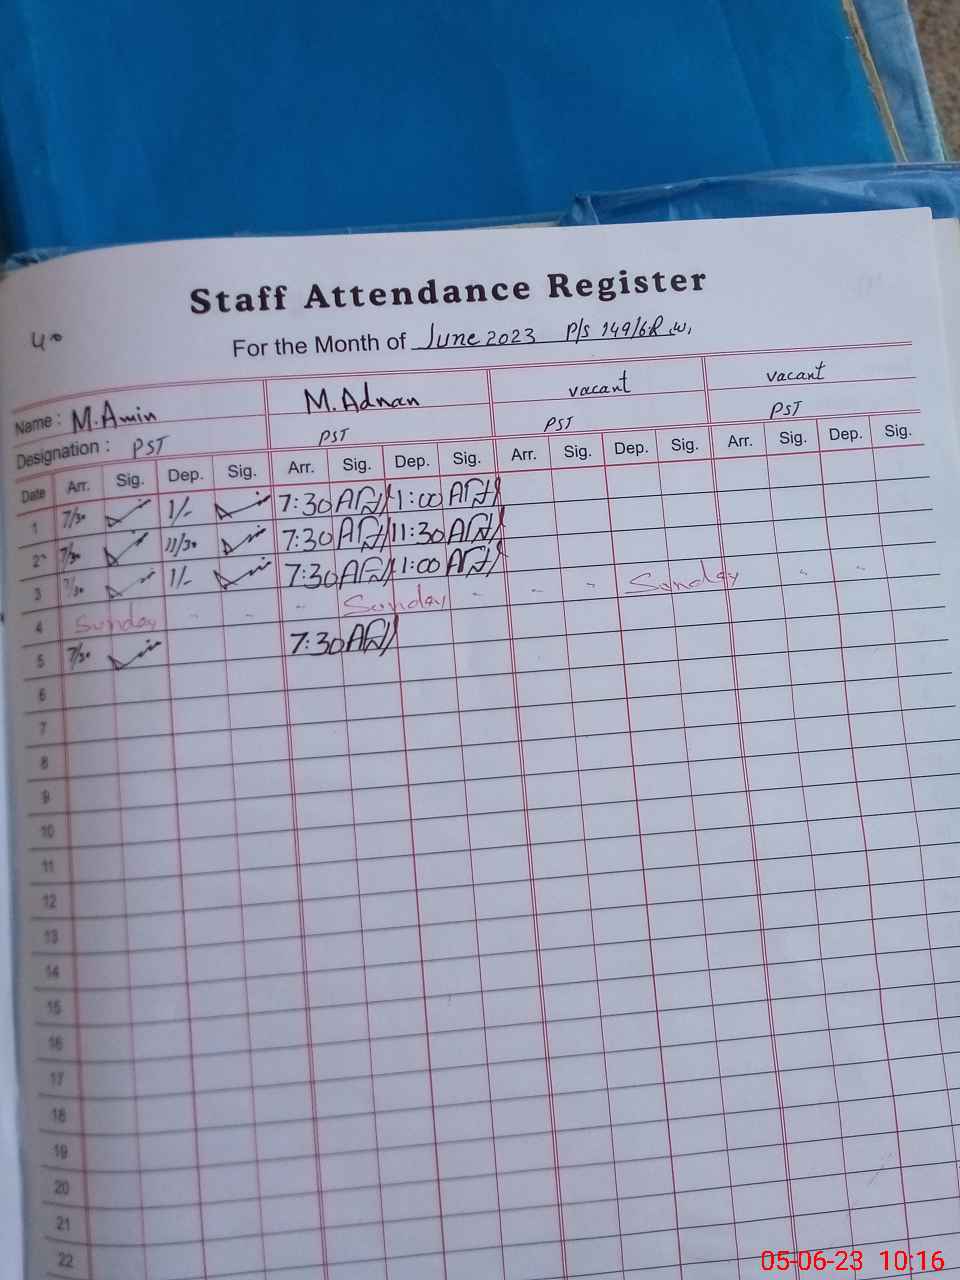 40
Staff Attendance Register
For the Month of June 2023 P/S 149/6R W,
Name : M.Amin M.Adnan vacant vacant
Designation : PST PST PST PST
Date Arr. Sig. Dep. Sig. Arr. Sig. Dep. Sig. Arr. Sig. Dep. Sig. Arr. Sig. Dep. Sig.
1 7/30 1/- 7:30 1:00
2 7/30 11/30 7:30 11:30
3 7/30 1/- 7:30 1:00
4 Sunday Sunday Sunday
5 7/30 7:30
6
7
8
9
10
11
12
13
14
15
16
17
18
19
20
21
22
05-06-23 10:16